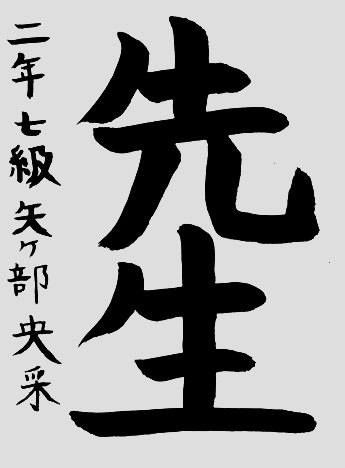 先生
二年七級矢ヶ部央采